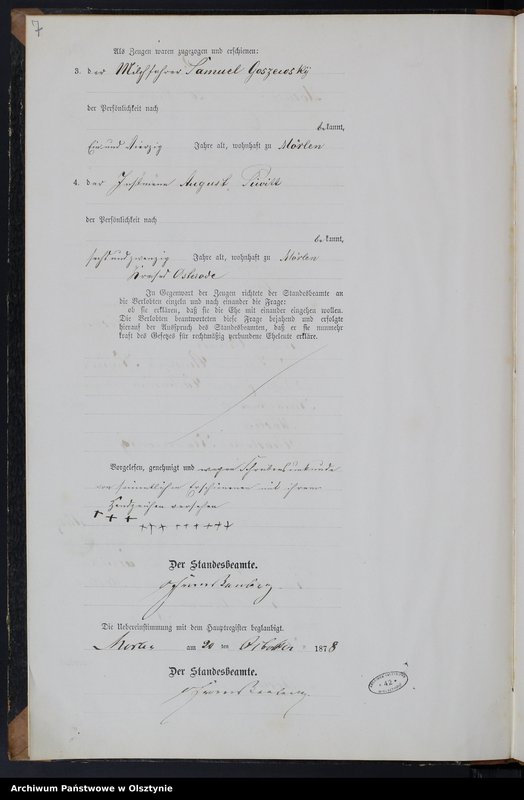 7
Als Zeugen waren zugezogen und erschienen:
3. der Milchfahrer Samuel Goszewsky
der Persönlichkeit nach
bekannt,
Ein und vierzig Jahre alt, wohnhaft zu Mörlen
4. der Instmann August
der Persönlichkeit nach
bekannt,
sechs und zwanzig Jahre alt, wohnhaft zu Mörlen
Kreises Osterode
In Gegenwart der Zeugen richtete der Standesbeamte an
die Verlobten einzeln und nach einander die Frage:
ob sie erklären, daß sie die Ehe mit einander eingehen wollen.
Die Verlobten beantworteten diese Frage bejahend und erfolgte
hierauf der Ausspruch des Standesbeamten, daß er sie nunmehr
kraft des Gesetzes für rechtmäßig verbundene Eheleute erkläre.
Vorgelesen, genehmigt und wegen Schreibensunkunde
von sämmtlichen Erschienenen mit ihrem
Handzeichen versehen
+ + + +++ +++ +++
Der Standesbeamte.
Die Uebereinstimmung mit dem Hauptregister beglaubigt.
am 20 ten Oktober 1878
Der Standesbeamte.
42
Archiwum Państwowe w Olsztynie